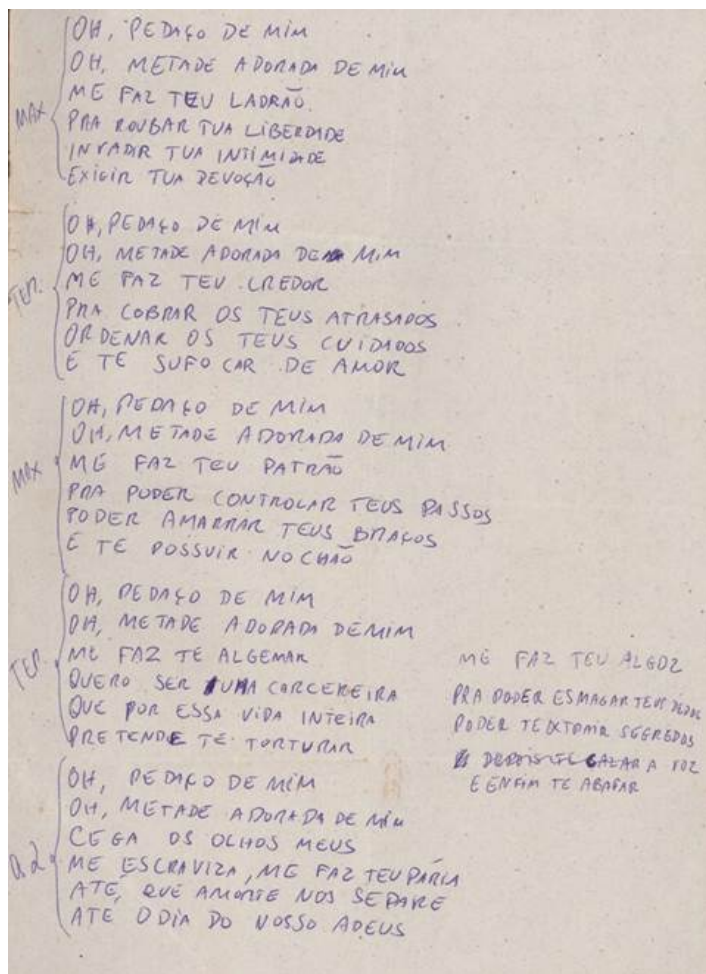 MAX
OH, PEDAÇO DE MIM
OH, METADE ADORADA DE MIM
ME FAZ TEU LADRÃO
PRA ROUBAR TUA LIBERDADE
INVADIR TUA INTIMIDADE
EXIGIR TUA DEVOÇÃO
TER.
OH, PEDAÇO DE MIM
OH, METADE ADORADA DE MIM
ME FAZ TEU CREDOR
PRA COBRAR OS TEUS ATRASADOS
ORDENAR OS TEUS CUIDADOS
E TE SUFOCAR DE AMOR
MAX
OH, PEDAÇO DE MIM
OH, METADE ADORADA DE MIM
ME FAZ TEU PATRÃO
PRA PODER CONTROLAR TEUS PASSOS
PODER AMARRAR TEUS BRAÇOS
E TE POSSUIR NO CHÃO
TER.
OH, PEDAÇO DE MIM
OH, METADE ADORADA DE MIM
ME FAZ TE ALGEMAR
QUERO SER TUA CARCEREIRA
QUE POR ESSA VIDA INTEIRA
PRETENDE TE TORTURAR
ME FAZ TEU ALGOZ
PRA PODER ESMAGAR TEUS DEDOS
PODER TE EXTRAIR SEGREDOS
CALAR A VOZ
E ENFIM TE ABAFAR
a 2
OH, PEDAÇO DE MIM
OH, METADE ADORADA DE MIM
CEGA OS OLHOS MEUS
ME ESCRAVIZA, ME FAZ TEU PÁRIA
ATÉ QUE A MORTE NOS SEPARE
ATÉ O DIA DO NOSSO ADEUS